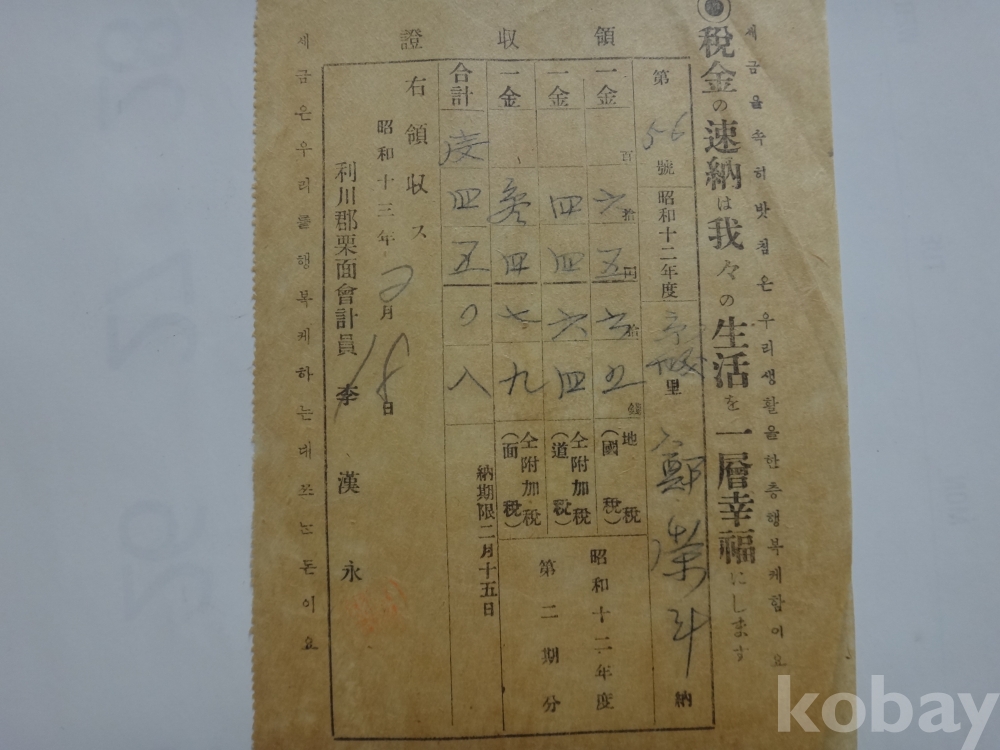 세금을속히밧침은우리생활을한층행복케함이요
税金の速納は我々の生活を一層幸福にします
領収證
第56號 昭和十二年度 里 鄭榮斗 納
一金 百 六拾五円六拾五錢 地税(國税)
一金 四四六四 仝附加税(道税)
一金 四七九 仝附加税(面税)
昭和十二年度
第二期分
合計 四五〇八
納期限二月十五日
右領収ス
昭和十三年2月18日
利川郡栗面會計員 李漢永
세금은우리를행복케하는대쓰는돈이요
kobay